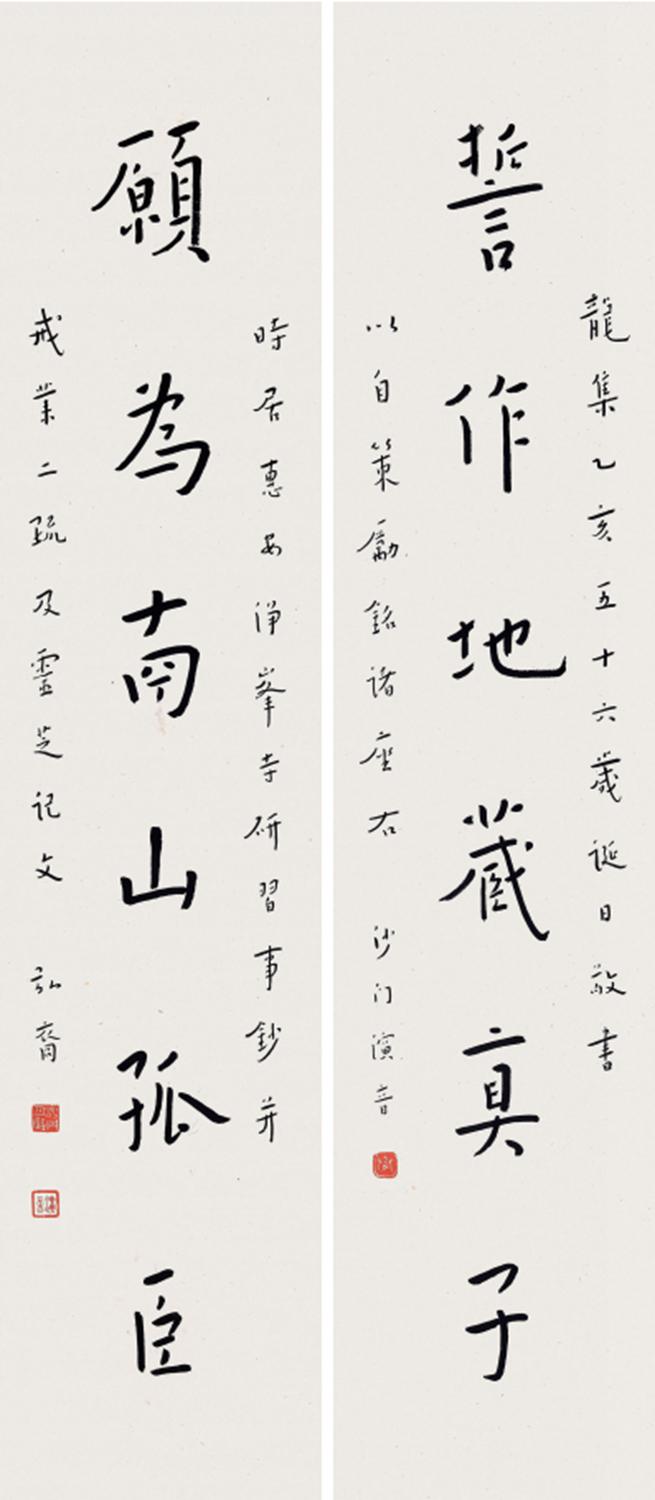 龍集乙亥五十六歲誕日敬書
誓作地藏真子
以自策勵銘諸座右 沙门演音
時居惠安淨峯寺研習事鈔并
願為南山孤臣
戒業二疏及靈芝記文 弘裔